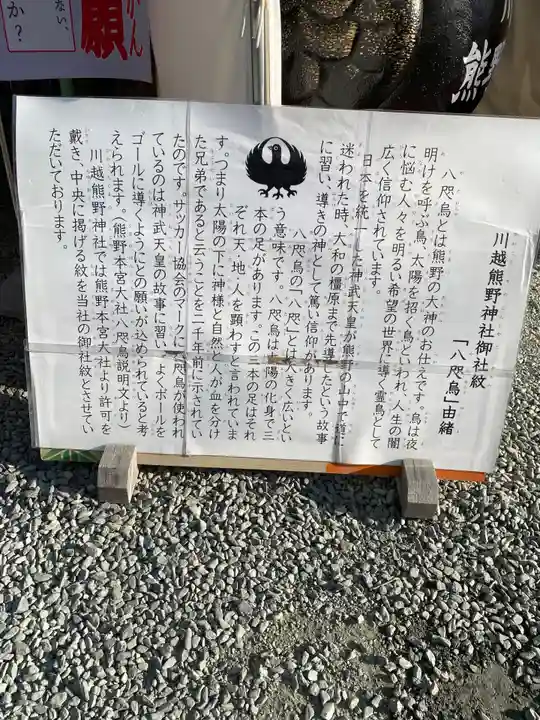 川越熊野神社御社紋
「八咫烏」由緒
八咫烏とは熊野の大神のお仕えです。烏は夜
明けを呼ぶ鳥、太陽を招く鳥といわれ、人生の闇
に悩む人々を明るい希望の世界に導く霊鳥として
広く信仰されています。
日本を統一した神武天皇が熊野の山中で道に
迷われた時、大和の橿原まで先導したという故事
に習い、導きの神として篤い信仰があります。
八咫烏の「八咫」とは大きく広いとい
う意味です。八咫烏は太陽の化身で三
本の足があります。この三本の足はそれ
ぞれ天・地・人を顕わすと言われていま
す。つまり太陽の下に神様と自然と人が血を分け
た兄弟であると云うことを二千年前に示されてい
たのです。サッカー協会のマークに八咫烏が使われ
ているのは神武天皇の故事に習い、よくボールを
ゴールに導くようにとの願いが込められていると考
えられます。（熊野本宮大社八咫烏説明文より）
川越熊野神社では熊野本宮大社より許可を
戴き、中央に掲げる紋を当社の御社紋とさせてい
ただいております。
願
かん
ない、
か？
熊野